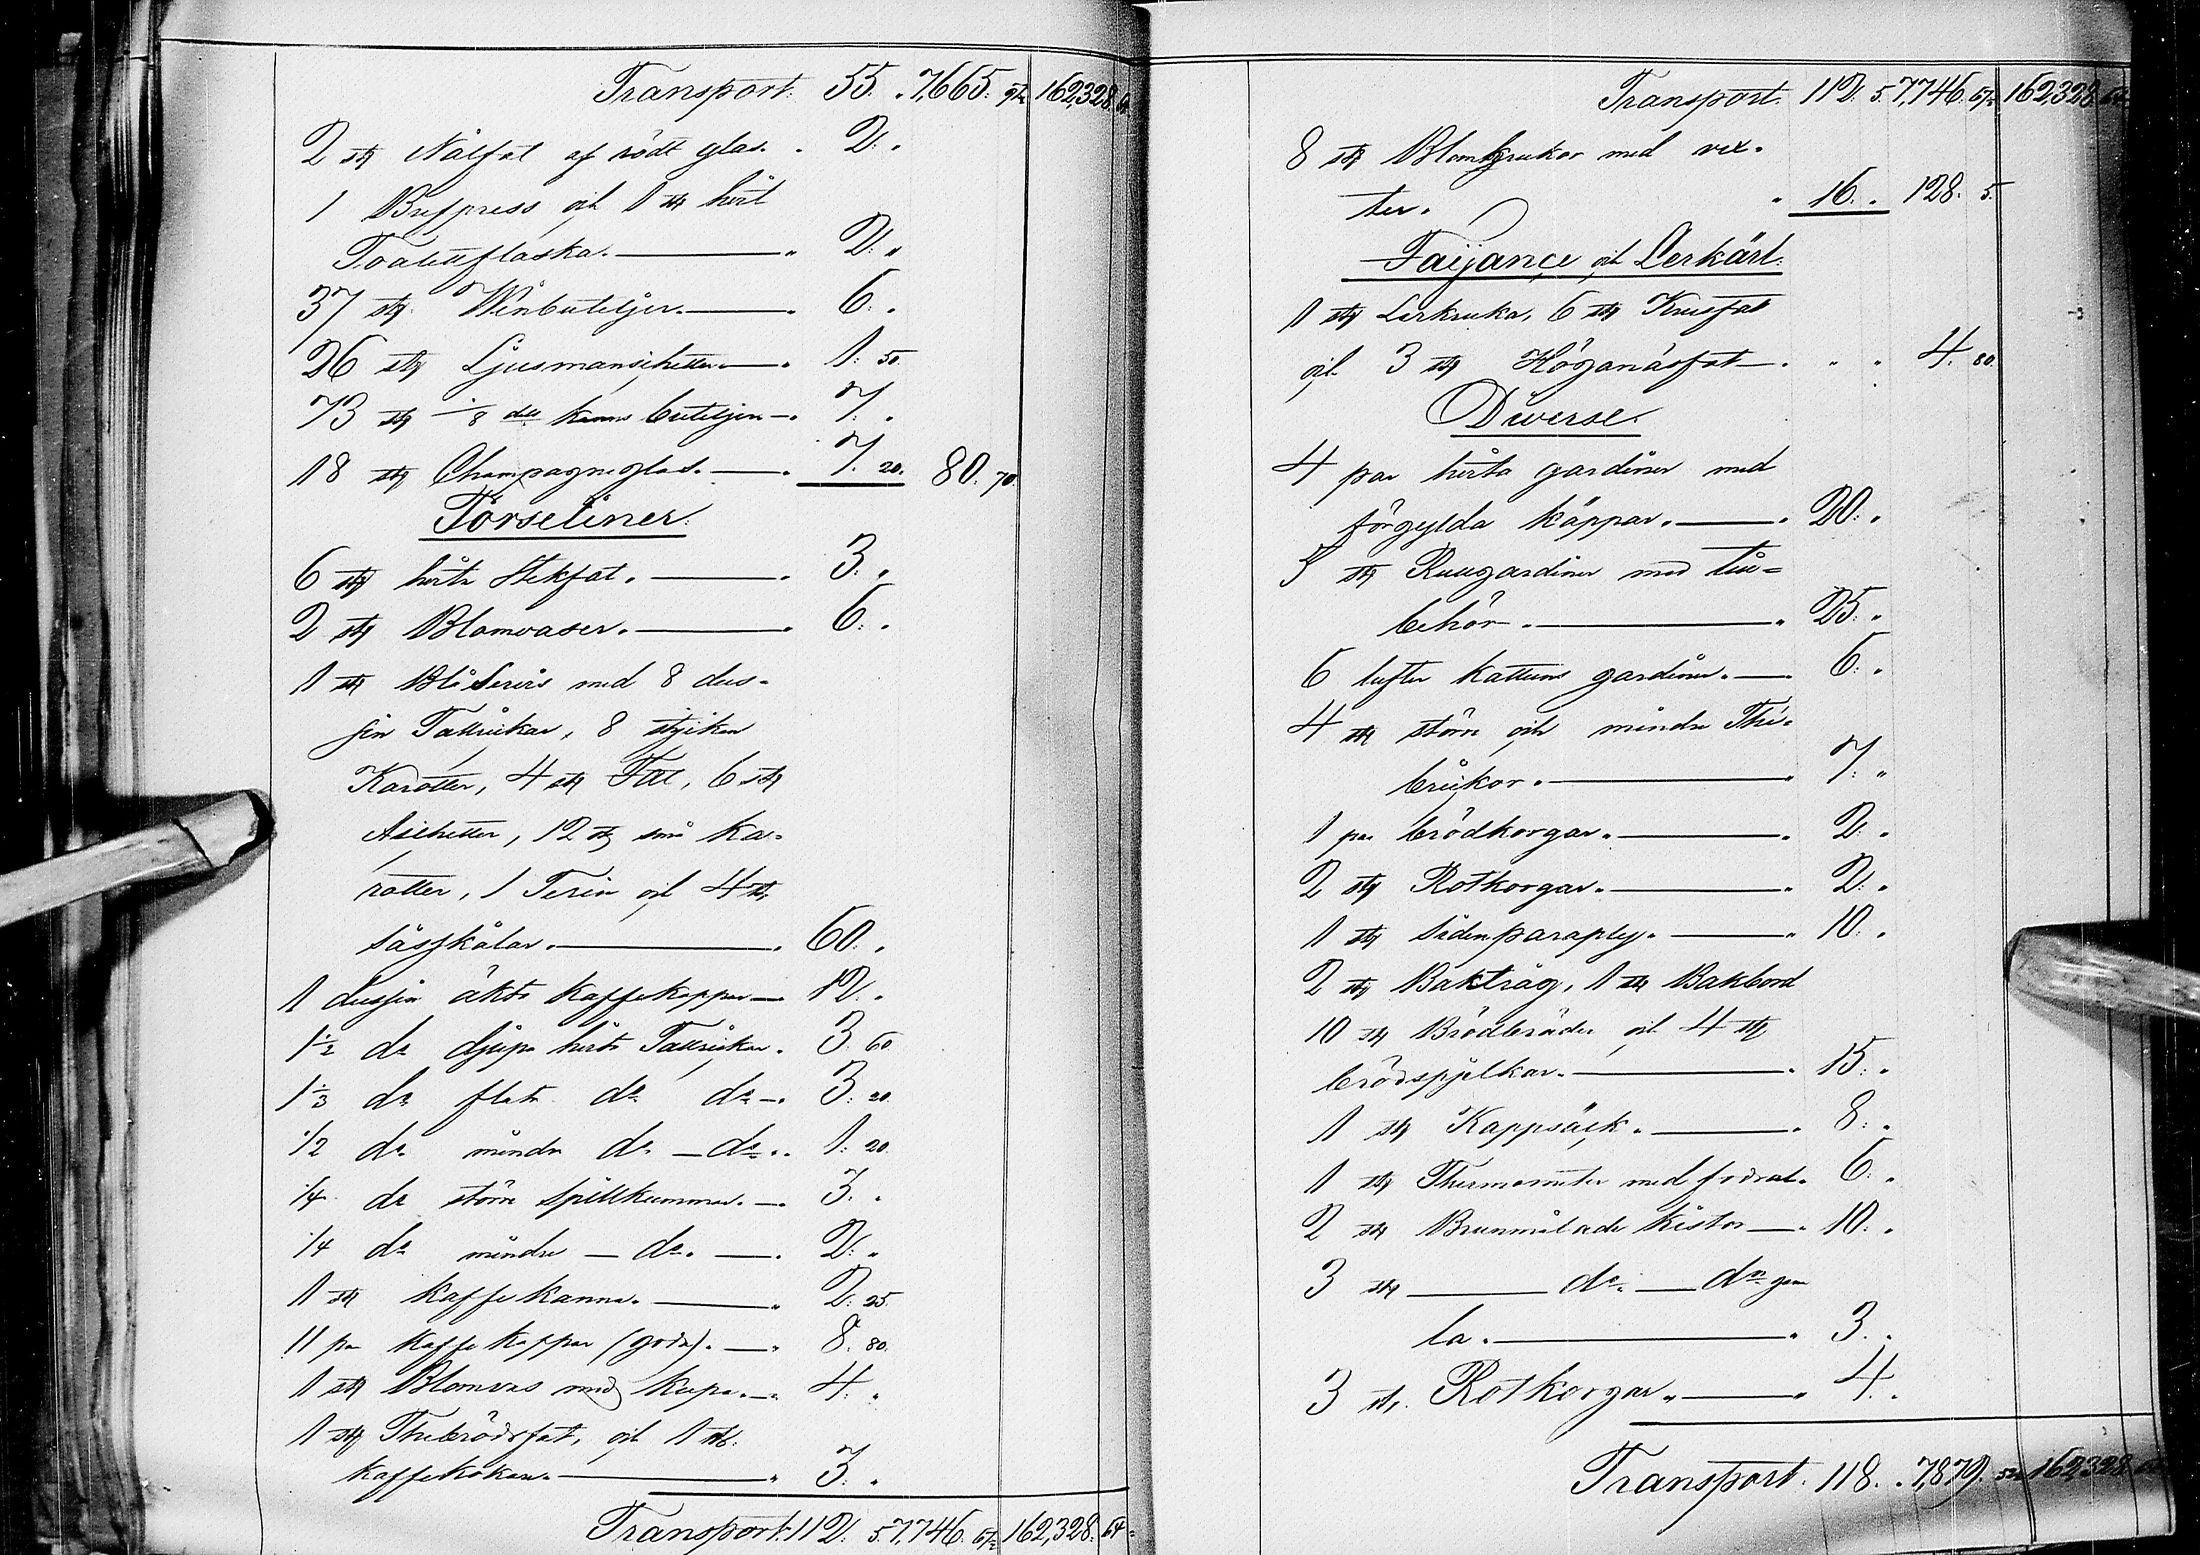 Transport. 55. " 7,665. 97 162,328. 64
2 st Nålfat af rödt glas. " 2. "
1 Brefpress och 1 st hvit
Toalettflaska. — " 2. "
37 st Vinbuteljer. — " 6. "
26 st Ljusmanschetter — " 1. 50
73 st 1/8 dels kanns buteljer — " 7. "
18 st Champagneglas. — " 7. 20. 80. 70.
Porseliner.
6 st hvita Stekfat. — " 3. "
2 st Blomvaser. — " 6. "
1 st Blå Servis med 8 dus-
sin Tallrickar, 8 stycken
Karotter, 4 st Fat, 6 st
Aschetter, 12 st små Ka-
rotter, 1 Terin och 4 st
såsskålar. — " 60. "
1 dussin äkta Kaffekoppar — 12. "
1 1/2 do djupa hvita Tallrickar. 3. 60
1 1/3 do flata do do — " 3. 20.
1/2 do mindre do — do. " 1. 20.
1/4 do större Spillkummar. — 3. "
1/4 do mindre — do. — " 2. "
1 st Kaffekanna. — " 2. 25.
11 par Kaffekoppar (goda). — " 8. 80.
1 st Blomvas med Kupa. — " 4. "
1 st Thebrödsfat, och 1 st.
Kaffekokare. — " 3. "
Transport. 112. 5. 7,746. 67 162,328. 64
Transport. 112. 5. 7,746. 67 162,328. 64
8 st Blomkrukor med vex-
ter. " 16. " 128. 5.
Faijance och Lerkärl.
1 st Lerkruka, 6 st Krusfat
och 3 st Höganäsfat — " " " 4. 80.
Diverse.
4 par hvita gardiner med
förgylda käppar. — " 20. "
5 st Rullgardiner med till=
behör. — " 25. "
6 lufter kattuns gardiner. — 6. "
4 st större och mindre The-
brickor. — " 7. "
1 par brödkorgar. — " 2. "
2 st Rotkorgar. — " 2. "
1 st Sidenparaply. — " 10. "
2 st Baktråg, 1 st Bakbord
10 st Brödbräder och 4 st
brödspjelkar. — " 15. "
1 st Kappsäck. — " 8. "
1 st Thermometer med fodral. 6. "
2 st Brunmålade kistor — " 10. "
3 st — do. — do gam
la. — " 3. "
3 st. Rotkorgar. — " 4. "
Transport. 118. " 7,879. 52 162,328. 64